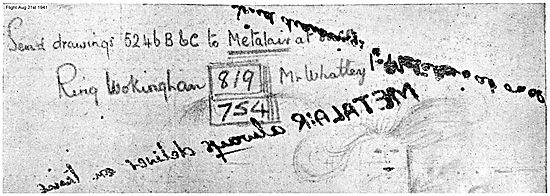 Flight Aug 21st 1941
Send drawings 5246 B & C to Metalair at
Ring Wokingham 819 Mr Whatley
754
METALAIR always deliver on time